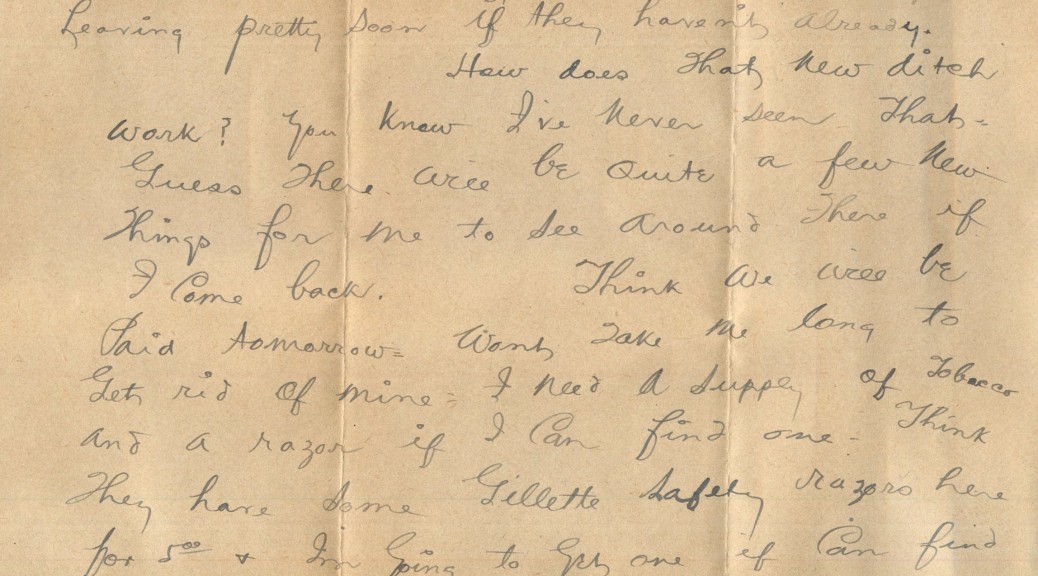 Leaving pretty soon if they haven't already.
How does that new ditch
work? You know I've never seen that-
Guess there will be quite a few new
things for me to see around there if
I come back. Think we will be
Paid tomorrow= Wont take me long to
Get rid of mine= I need a supply of Tobacco
and a razor if I can find one- Think
they have some Gillette safety razors here
for 5⁰⁰ & I'm going to get one if can find